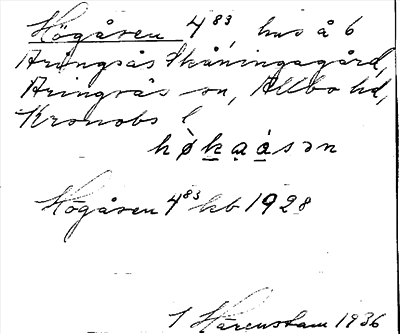 Högåsen 4⁸³, hus å 6
Aringsås Skåningagård,
Aringsås sn, Allbo hd,
Kronobs l
hø̀ḵa̱á̱sən
Högåsen 4⁸³ kb 1928
J Härenstam 1936